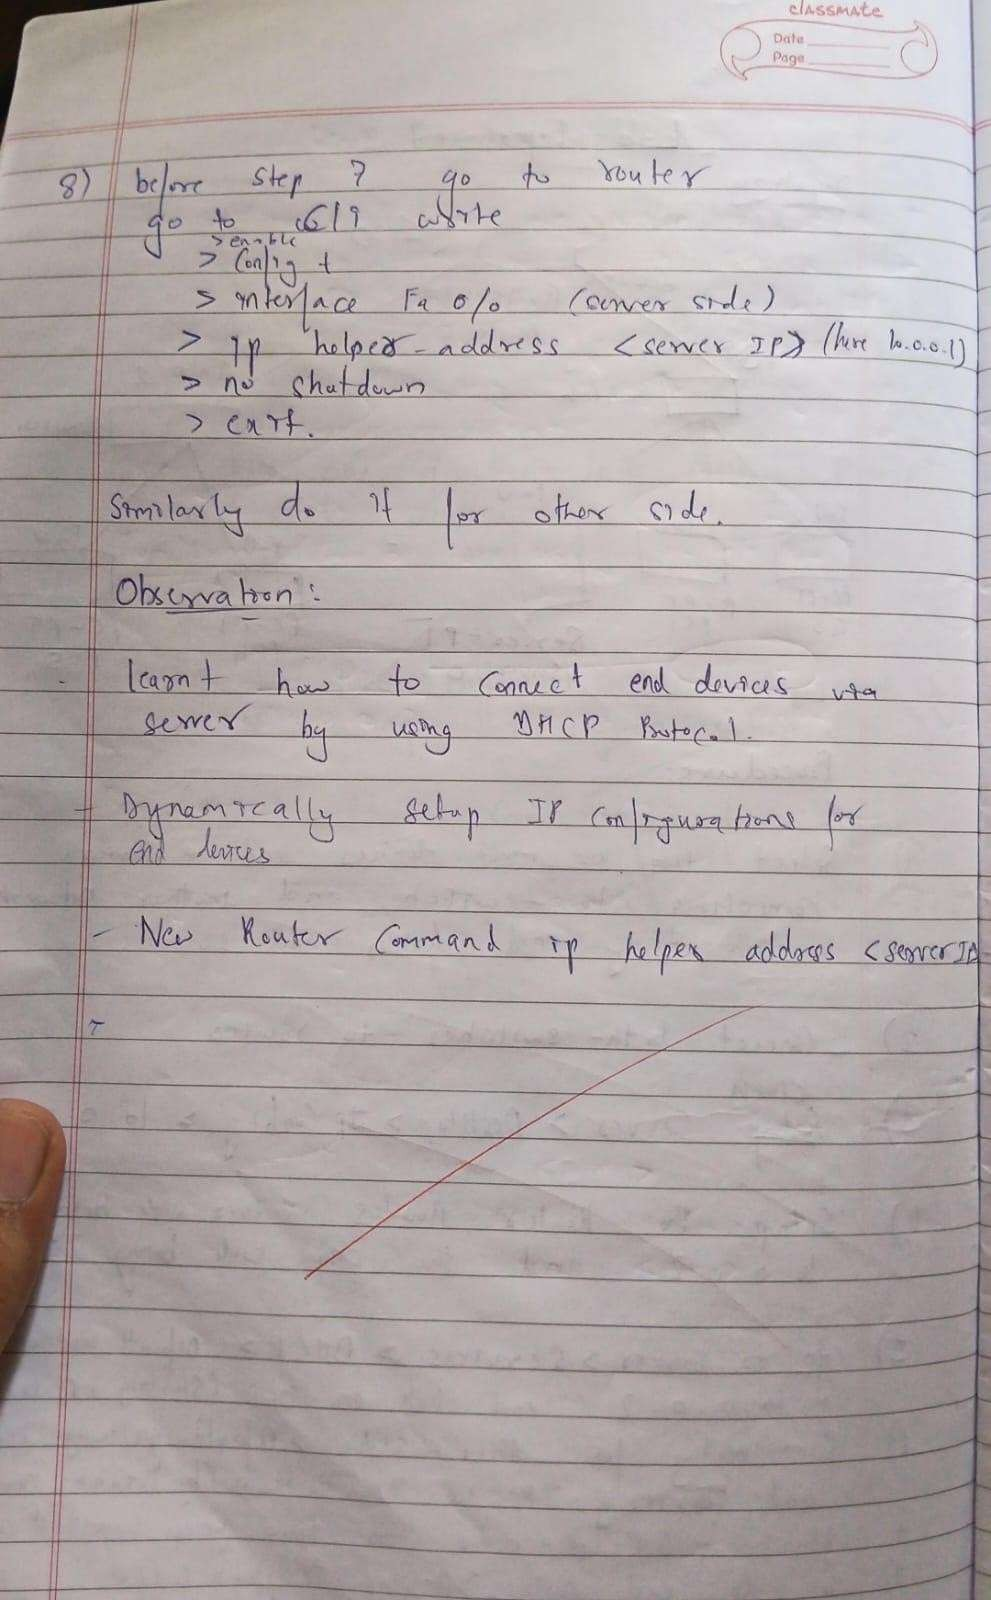 classmate
Date
Page
8) before step 7 go to router
go to write
> enable
> Config t
> interface Fa 0/0 (server side)
> ip helper-address <server IP> (here 10.0.0.1)
> no shutdown
> exit.
Similarly do it for other side.
Observation:
- learnt how to connect end devices via
server by using DHCP Protocol.
- Dynamically setup IP configurations for
end devices
- New Router Command ip helper address <server IP
-